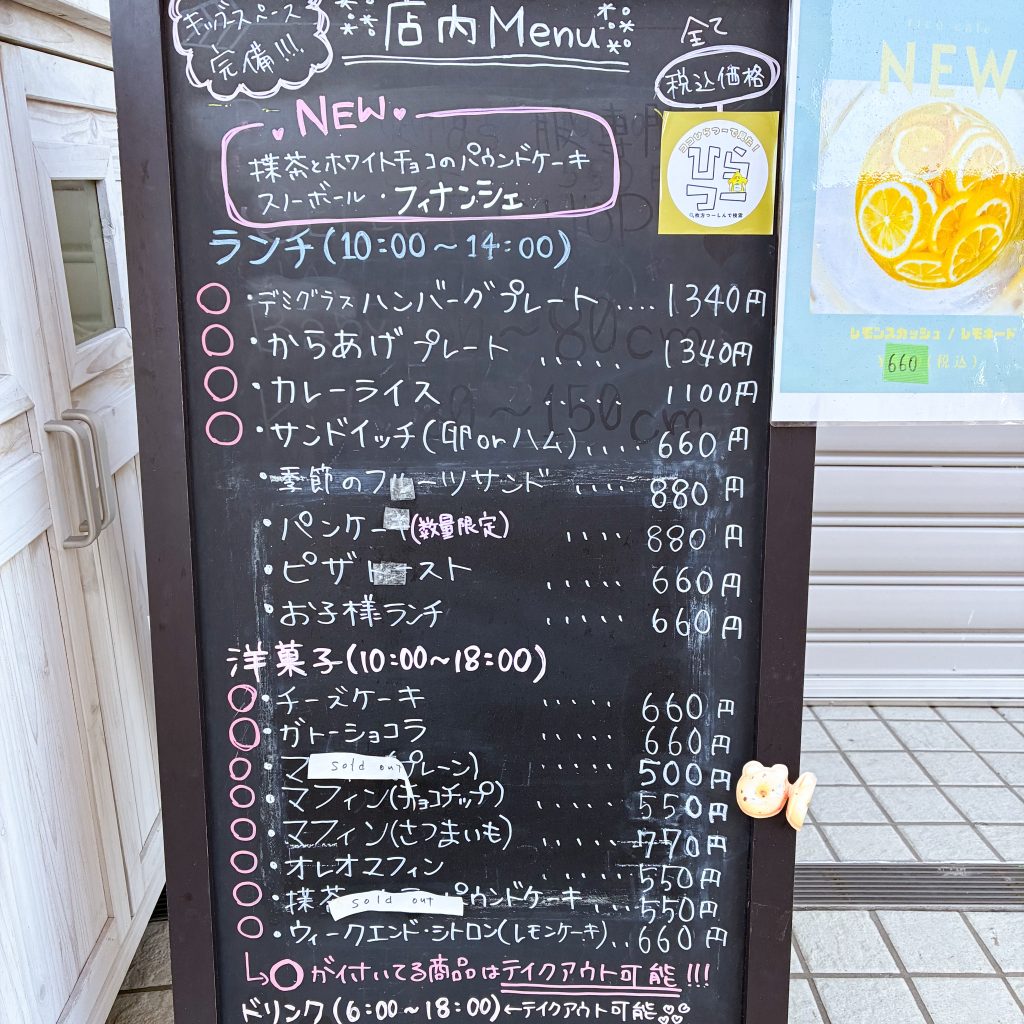 キッズスペース
完備!!!
店内Menu
全て
税込価格
NEW
抹茶とホワイトチョコのパウンドケーキ
スノーボール・フィナンシェ
ココひらつーで見た!
ひら
つー
枚方つーしんで検索
ランチ(10:00〜14:00)
・デミグラスハンバーグプレート ....1340円
・からあげプレート .....1340円
・カレーライス .....1100円
・サンドイッチ(卵orハム).....660円
・季節のフルーツサンド ....880円
・パンケーキ(数量限定) .....880円
・ピザトースト ......660円
・お子様ランチ ......660円
洋菓子(10:00〜18:00)
・チーズケーキ .....660円
・ガトーショコラ .....660円
マ sold out プレーン) .....500円
・マフィン(チョコチップ) .....550円
・マフィン(さつまいも) .....770円
・オレオマフィン .....550円
・抹茶 sold out パウンドケーキ ...550円
・ウィークエンド・シトロン(レモンケーキ)..660円
↳○がついてる商品はテイクアウト可能!!!
ドリンク(6:00〜18:00)←テイクアウト可能
rico cafe
NEW
レモンスカッシュ / レモネード
¥660(税込)